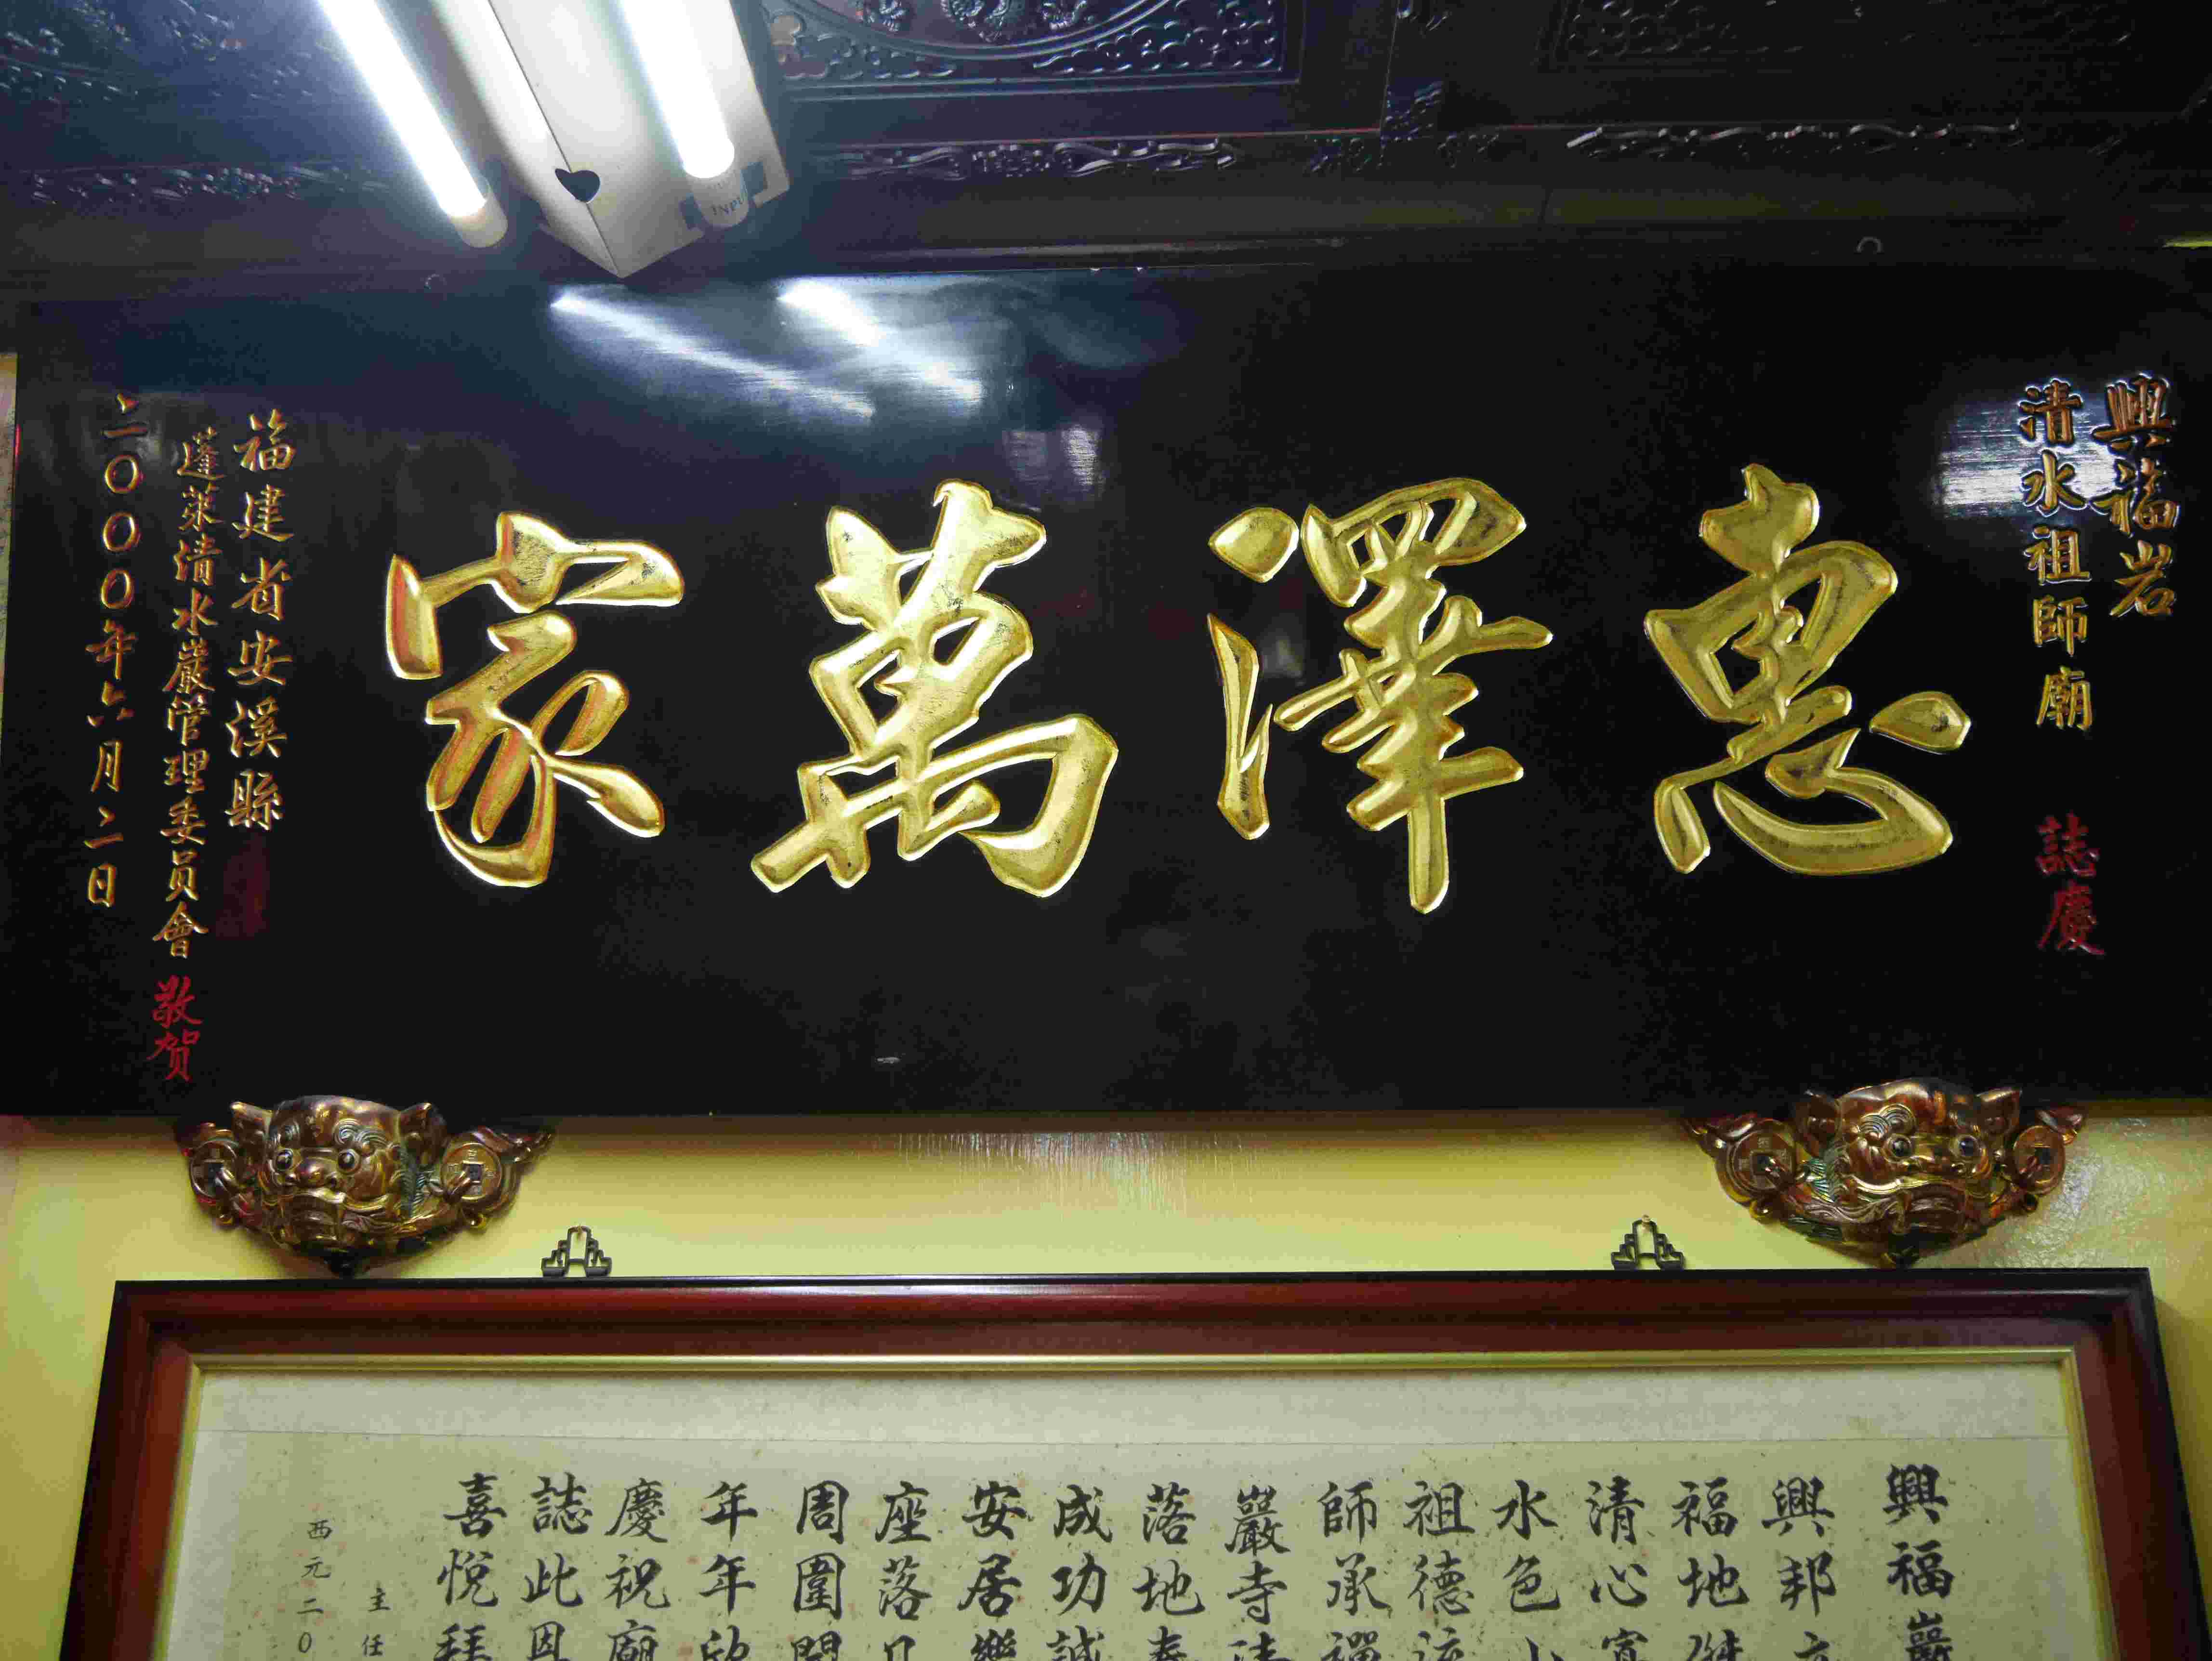 興福岩
清水祖師廟 誌慶
惠澤萬家
福建省安溪縣
蓬萊清水巖管理委员會 敬贺
二〇〇〇年六月二日
INPU
興福巖
興邦
福地
清心
水色
祖德
師承禪
巖寺清
落地
成功誠
安居樂
座落
周圍
年年欣
慶祝廟
誌此因
喜悅
主任
西元二〇